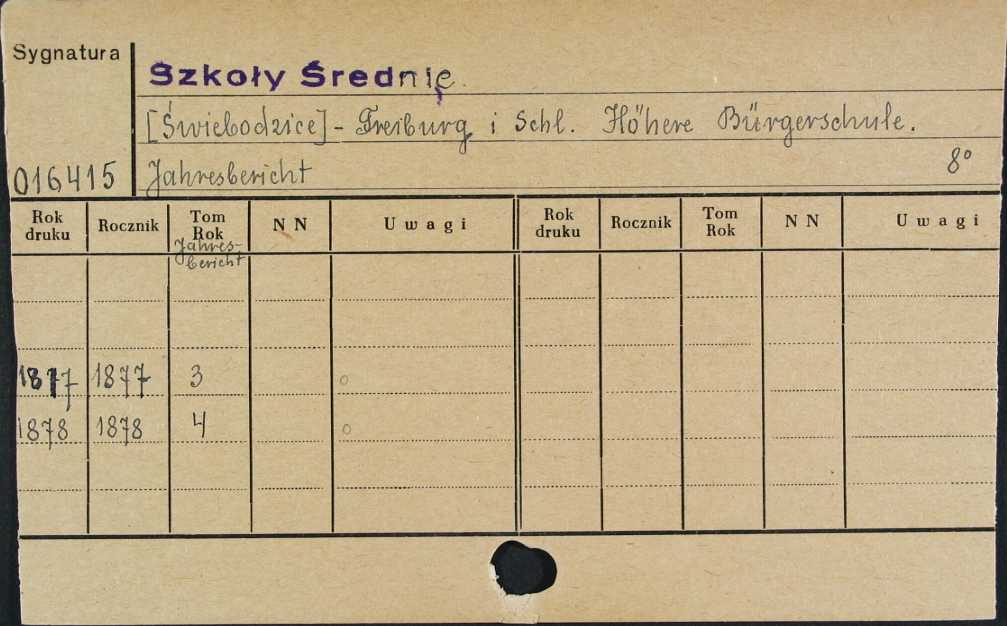 Sygnatura
Szkoły Średnie.
[Świebodzice] - Freiburg i Schl. Höhere Bürgerschule.
016415 Jahresbericht 8°
Rok druku Rocznik Tom Rok NN Uwagi Rok druku Rocznik Tom Rok NN Uwagi
Jahres-
bericht
1877 1877 3 o
1878 1878 4 o